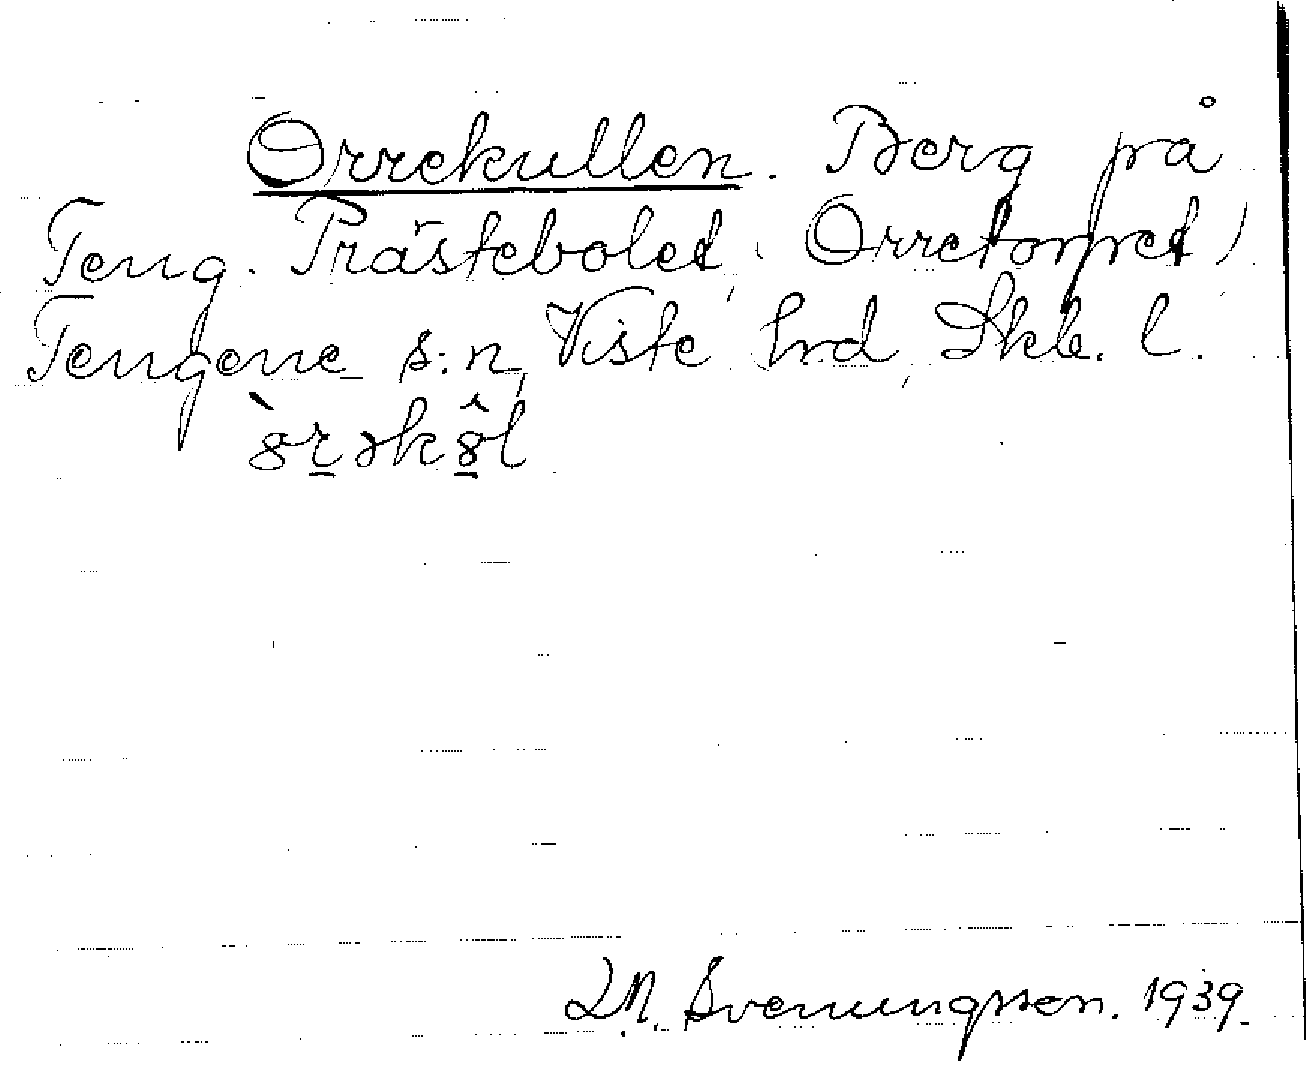 Orrekullen. Berg på
Teng. Prästebolet, (Orretorpet)
Tengene s:n, Viste hrd, Skb. l.
ȣ̀r̲əkȣ̲̂l
L.N. Svenungsson. 1939.